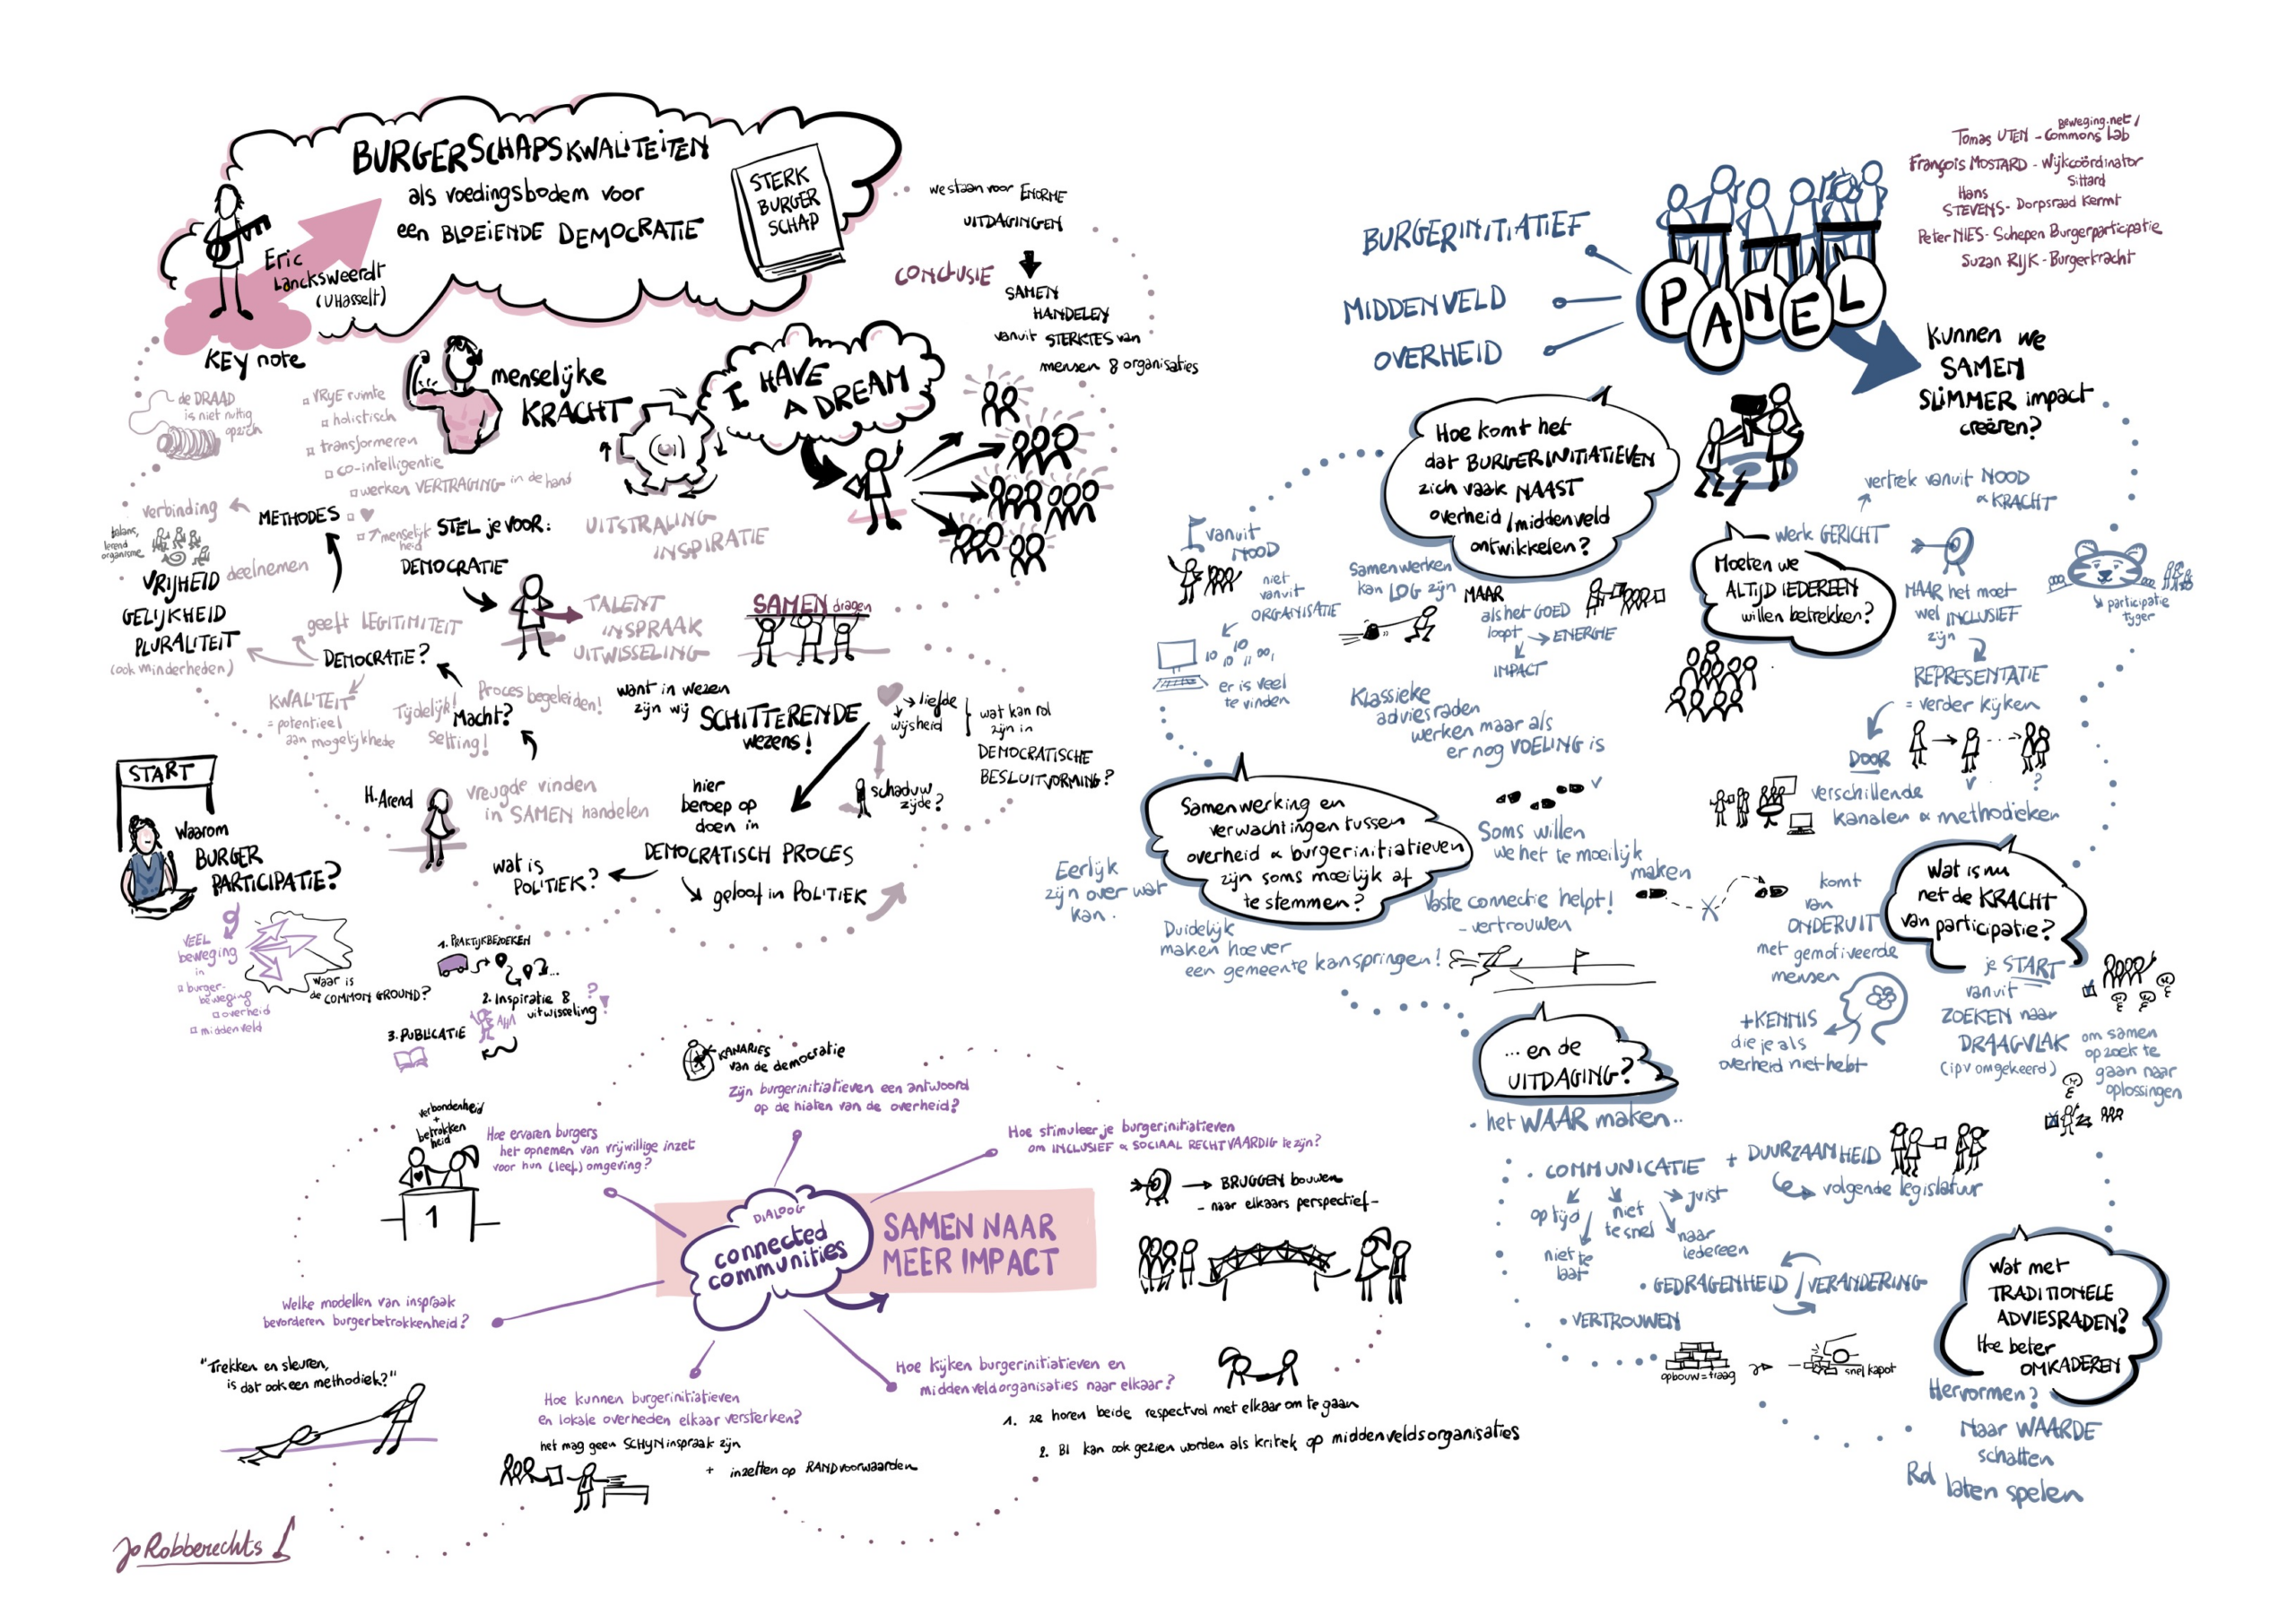 BURGERSCHAPSKWALITEITEN
als voedingsbodem voor
een BLOEIENDE DEMOCRATIE
STERK
BURGER
SCHAP
Eric
Lancksweerdt
(UHasselt)
KEY note
we staan voor ENORME
UITDAGINGEN
CONCLUSIE
SAMEN
HANDELEN
vanuit STERKTES van
mensen & organisaties
de DRAAD
is niet nuttig
opzich
VRIJE ruimte
holistisch
transformeren
co-intelligentie
werken VERTRAGING in de hand
menselijke
KRACHT
I HAVE
A DREAM
verbinding
METHODES
balans,
lerend
organisme
deelnemen
VRIJHEID
GELIJKHEID
PLURALITEIT
(ook minderheden)
STEL je VOOR:
DEMOCRATIE
UITSTRALING
INSPIRATIE
TALENT
INSPRAAK
UITWISSELING
SAMEN dragen
geeft LEGITIMITEIT
DEMOCRATIE?
KWALITEIT
= potentieel
aan mogelijkhede
Tijdelijk!
Setting!
Macht?
Proces begeleiden!
want in wezen
zijn wij SCHITTERENDE
wezens!
liefde
wijsheid
wat kan rol
zijn in
DEMOCRATISCHE
BESLUITVORMING?
schaduw
zijde?
H. Arend
vreugde vinden
in SAMEN handelen
hier
beroep op
doen in
DEMOCRATISCH PROCES
geloof in POLITIEK
wat is
POLITIEK?
START
Waarom
BURGER
PARTICIPATIE?
VEEL
beweging
in
burger-
beweging
overheid
middenveld
waar is
de COMMON GROUND?
1. PRAKTIJKBEZOEKEN
2. Inspiratie &
uitwisseling
3. PUBLICATIE
KANARIES
van de democratie
Zijn burgerinitiatieven een antwoord
op de hiaten van de overheid?
verbondenheid
+
betrokken
heid
1
Hoe ervaren burgers
het opnemen van vrijwillige inzet
voor hun (leef) omgeving?
Hoe stimuleer je burgerinitiatieven
om INCLUSIEF & SOCIAAL RECHTVAARDIG te zijn?
BRUGGEN bouwen
- naar elkaars perspectief -
DIALOOG
connected
communities
SAMEN NAAR
MEER IMPACT
Welke modellen van inspraak
bevorderen burgerbetrokkenheid?
"Trekken en sleuren,
is dat ook een methodiek?"
Hoe kunnen burgerinitiatieven
en lokale overheden elkaar versterken?
het mag geen SCHIJNinspraak zijn
+ inzetten op RANDvoorwaarden
Hoe kijken burgerinitiatieven en
middenveldorganisaties naar elkaar?
1. ze horen beide respectvol met elkaar om te gaan
2. BI kan ook gezien worden als kritiek op middenveldsorganisaties
Jo Robberechts
BURGERINITIATIEF
MIDDENVELD
OVERHEID
PANEL
Beweging.net/
Tomas UTEN - Commons Lab
François MOSTARD - Wijkcoördinator
Sittard
Hans
STEVENS - Dorpsraad Kermt
Peter NIES - Schepen Burgerparticipatie
Suzan RIJK - Burgerkracht
Kunnen we
SAMEN
SLIMMER impact
creëren?
Hoe komt het
dat BURGERINITIATIEVEN
zich vaak NAAST
overheid/middenveld
ontwikkelen?
vanuit
NOOD
niet
vanuit
ORGANISATIE
er is veel
te vinden
Samenwerken
kan LOG zijn
MAAR
als het GOED
loopt → ENERGIE
IMPACT
Klassieke
adviesraden
werken maar als
er nog VOELING is
vertrek vanuit NOOD
& KRACHT
werk GERICHT
Moeten we
ALTIJD IEDEREEN
willen betrekken?
MAAR het moet
wel INCLUSIEF
zijn
participatie
tijger
REPRESENTATIE
= verder kijken
DOOR
verschillende
kanalen & methodieken
Samenwerking en
verwachtingen tussen
overheid & burgerinitiatieven
zijn soms moeilijk af
te stemmen?
Eerlijk
zijn over wat
kan.
Duidelijk
maken hoever
een gemeente kan springen!
Soms willen
we het te moeilijk
maken
Vaste connectie helpt!
- vertrouwen
Wat is nu
net de KRACHT
van participatie?
komt
van
ONDERUIT
met gemotiveerde
mensen
+KENNIS
die je als
overheid niet hebt
je START
vanuit
ZOEKEN naar
DRAAGVLAK
(ipv omgekeerd)
om samen
op zoek te
gaan naar
oplossingen
... en de
UITDAGING?
. het WAAR maken..
. COMMUNICATIE
op tijd
niet te
laat
niet
te snel
juist
naar
iedereen
+ DUURZAAMHEID
volgende legislatuur
• GEDRAGENHEID / VERANDERING
• VERTROUWEN
opbouw = traag
snel kapot
Wat met
TRADITIONELE
ADVIESRADEN?
Hoe beter
OMKADEREN
Hervormen?
Naar WAARDE
schatten
Rol laten spelen